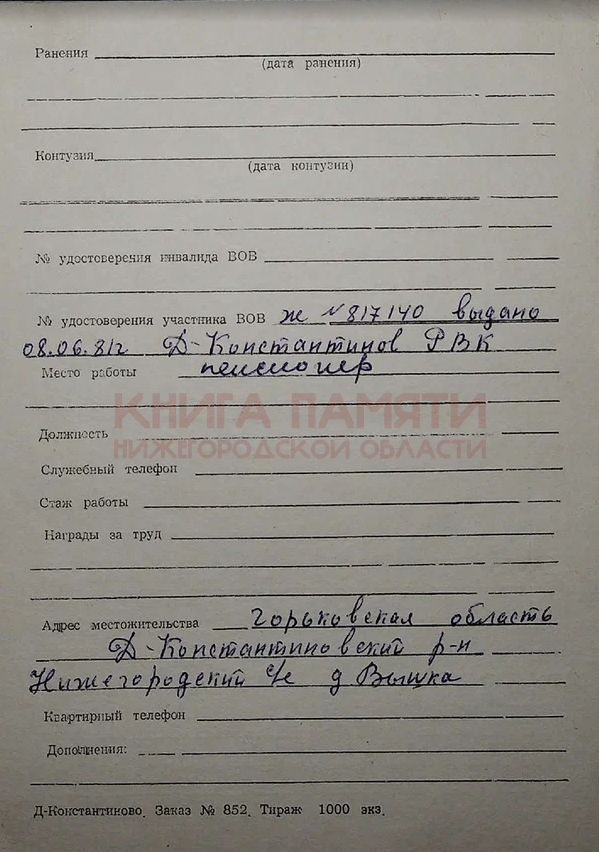 Ранения
(дата ранения)
Контузия
(дата контузии)
№ удостоверения инвалида ВОВ
№ удостоверения участника ВОВ Ж №817140 выдано
08.06.81г Д-Константинов РВК
Место работы пенсионер
КНИГА ПАМЯТИ
Должность
НИЖЕГОРОДСКОЙ ОБЛАСТИ
Служебный телефон
Стаж работы
Награды за труд
Адрес местожительства Горьковская область
Д-Константиновский р-н
Нижегородский с/с д Вышка
Квартирный телефон
Дополнения:
Д-Константиново. Заказ № 852. Тираж 1000 экз.